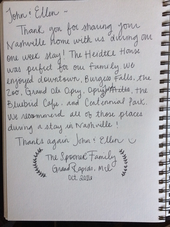 John & Ellen -
Thank you for sharing your
Nashville Home with us during our
one week stay! The Heidick House
was perfect for our family. We
enjoyed downtown, Burgess Falls, the
Zoo, Grand Ole Opry, the
Bluebird Cafe, and Centennial Park.
We recommend all of those places
during a stay in Nashville!
Thanks again John & Ellen
The Spooner Family
Grand Rapids, MI
Oct. 2020